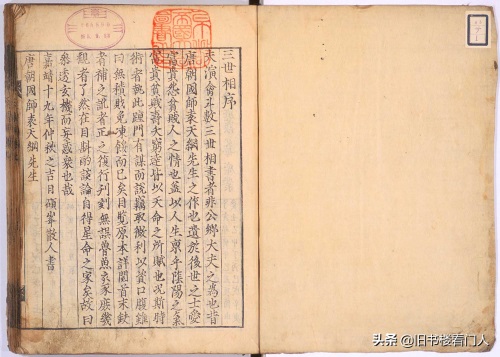 三世相序
夫演禽斗數三世相書者非公鄉大夫之為也昔
唐朝國師袁天綱先生之作也遺於後世之士愛
富貴愁貧賤人之情也益以人生稟乎陰陽之氣
富貴貧賤壽夭窮達皆以天命之所賦也況斯時
術者執此踵門有謀而說竊取微利以資口腹雖
曰無積賤免凍餒而已矣目覽原本詳閱首末缺
者補之訛者正之復行刊刻無誤魯魚亥豕庶幾
觀者了然在目斟酌談論自得星命之奧矣故曰
發透玄機而無惑矣也哉
嘉靖十九年仲秋之吉日 散人書
唐朝國師袁天綱先生
头条 @旧书楼看门人